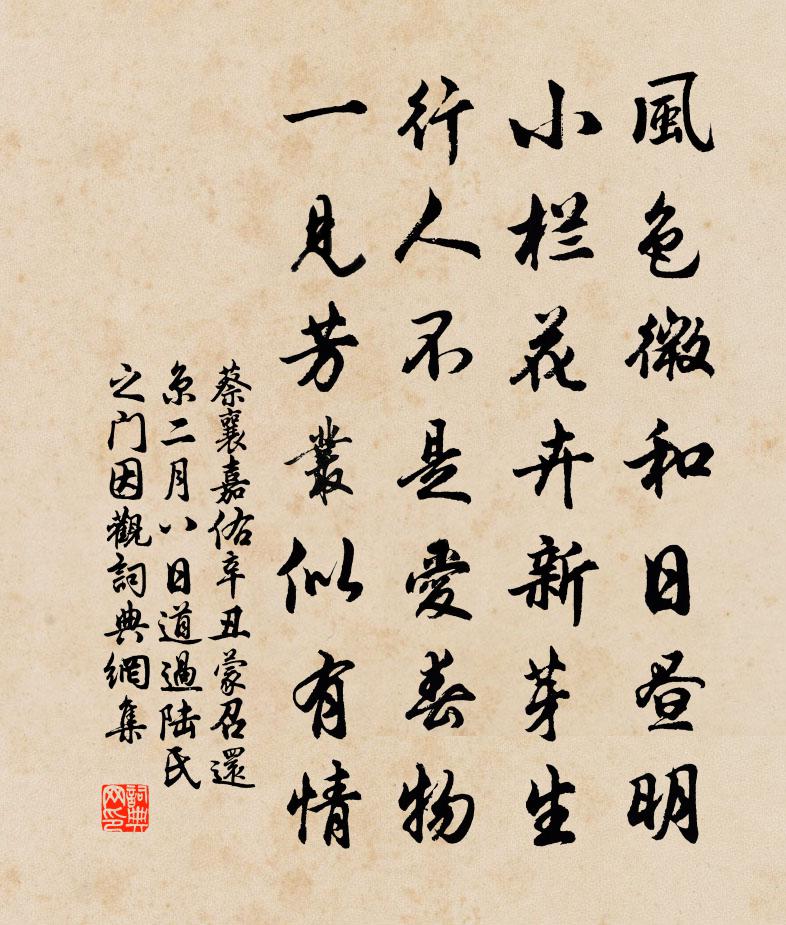 風色微和日昼明
小栏花卉新芽生
行人不是愛春物
一見芳叢似有情
蔡襄嘉佑辛丑蒙召還
京二月八日道過陆氏
之门因觀詞典網集
詞典
网印